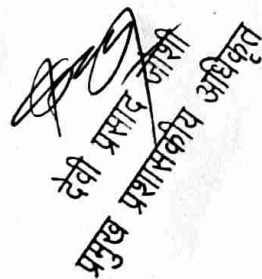 देवी प्रसाद जोशी
प्रमुख प्रशासकीय अधिकृत